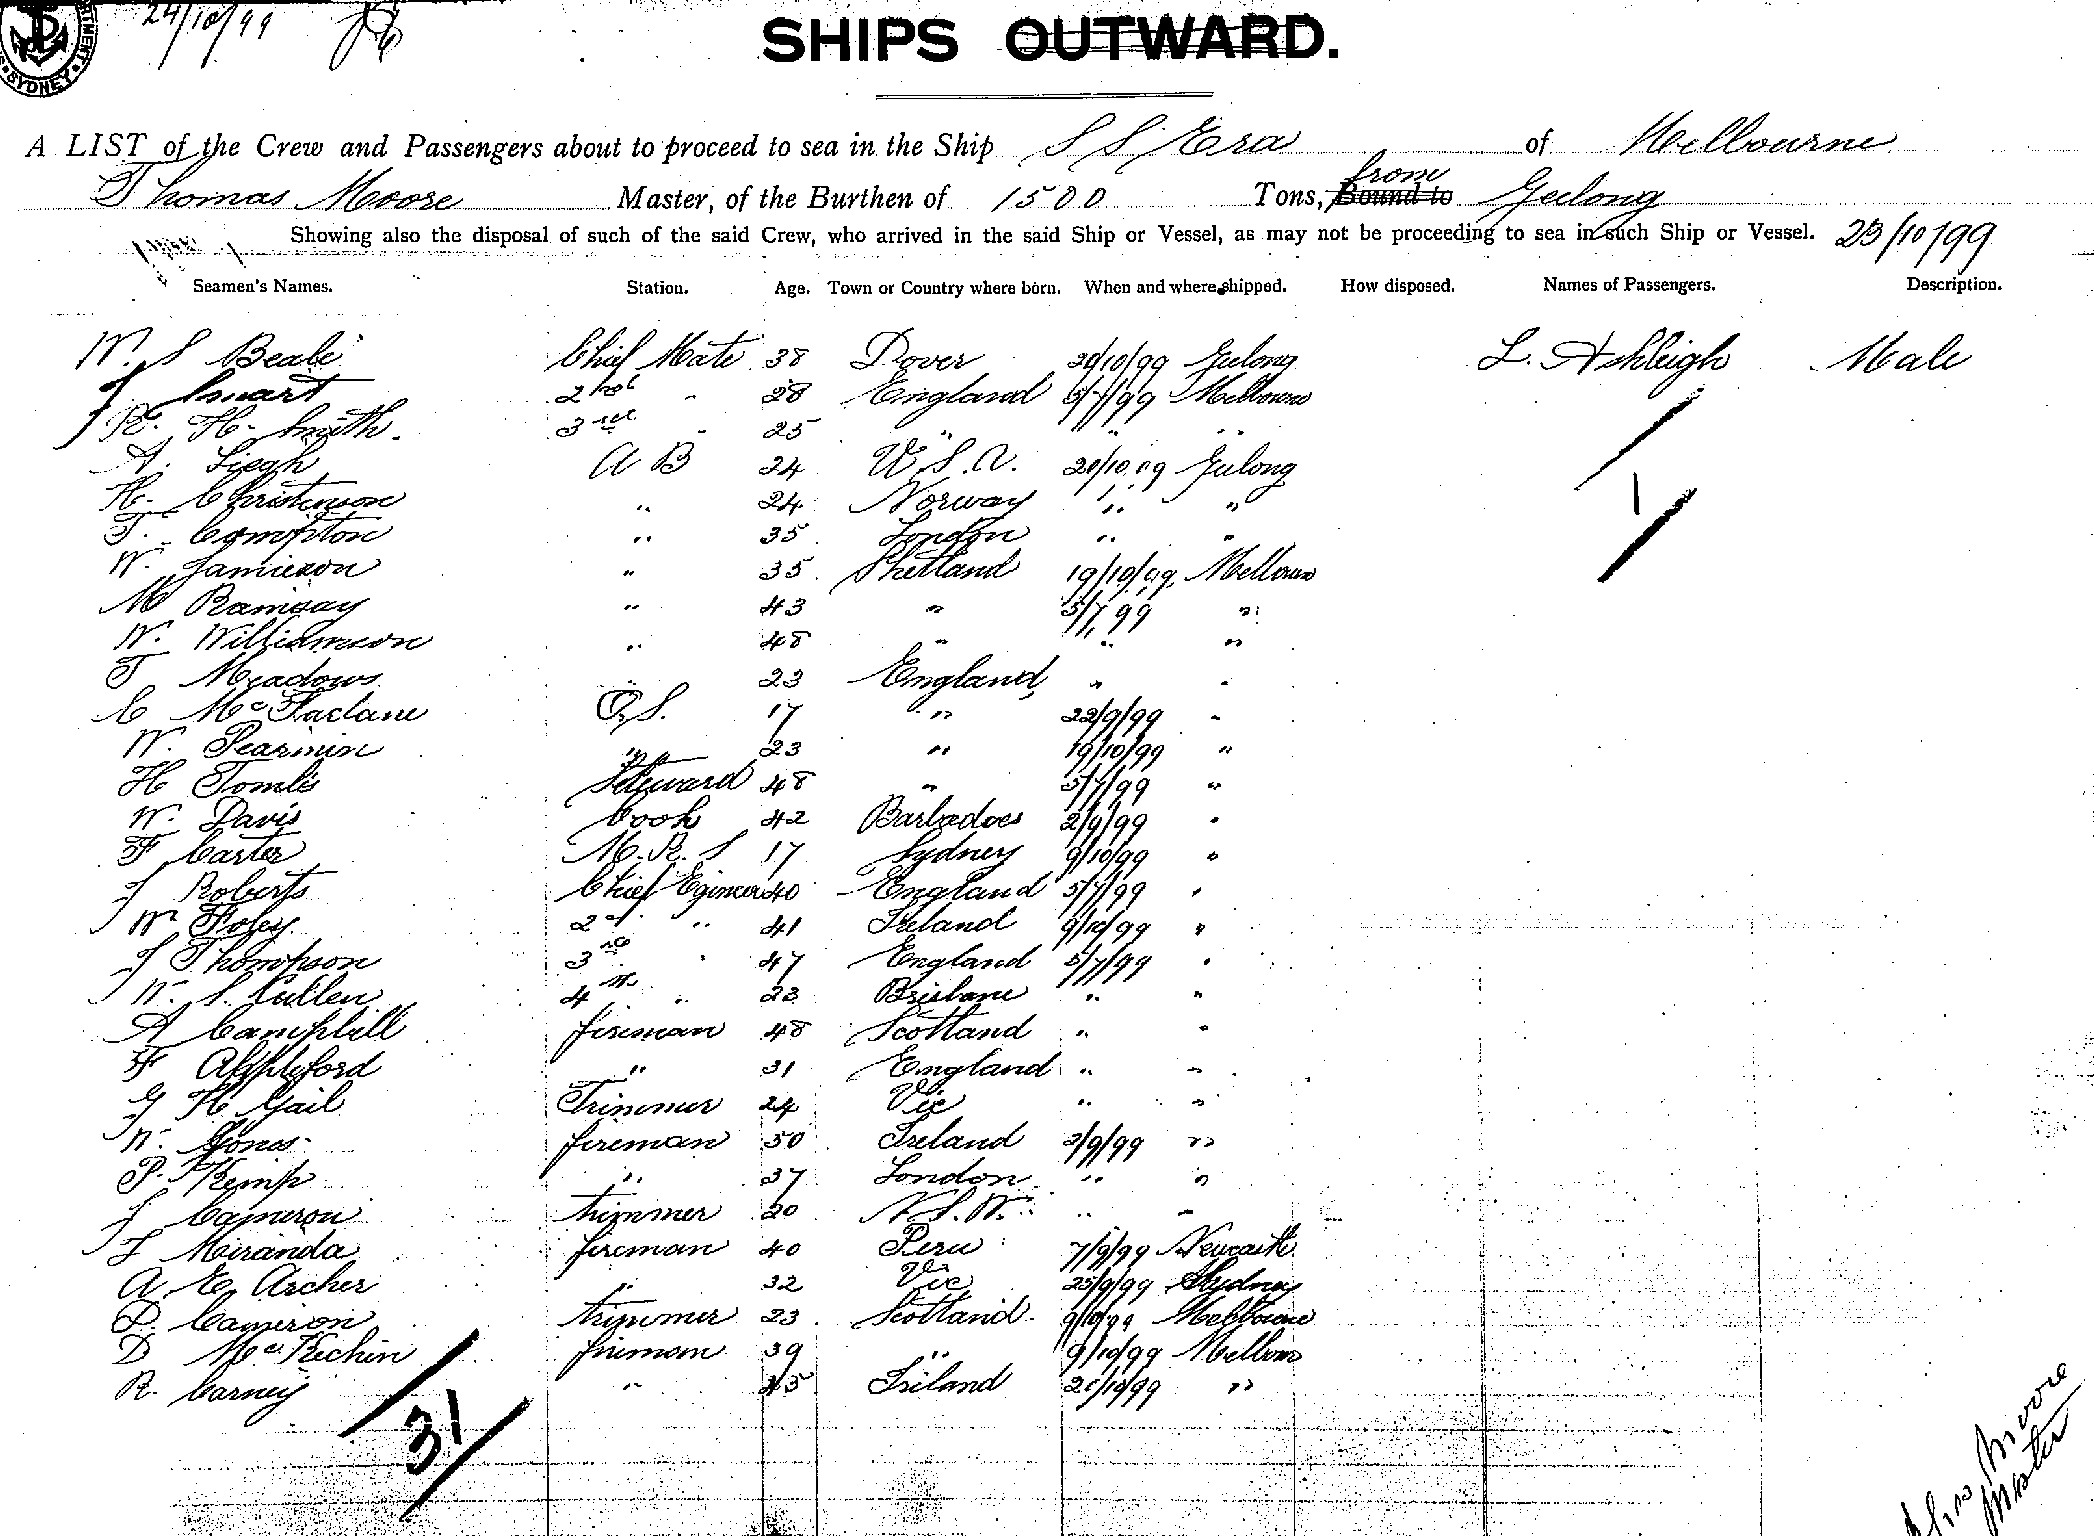 24/10/99
SYDNEY
SHIPS OUTWARD.
A LIST of the Crew and Passengers about to proceed to sea in the Ship S S Era of Melbourne
Thomas Moore Master, of the Burthen of 1500 Tons, Bound to from Geelong
Showing also the disposal of such of the said Crew, who arrived in the said Ship or Vessel, as may not be proceeding to sea in such Ship or Vessel. 23/10/99
Seamen's Names. Station. Age. Town or Country where born. When and where shipped. How disposed. Names of Passengers. Description.
W. S Beale Chief Mate 38 Dover 20/10/99 Geelong L. Ashleigh Male
J Smart 2nd " 28 England 5/7/99 Melbourne
R. H. Smith. 3rd " 25 " " "
A. Liegh A B 24 U.S.A. 20/10/99 Geelong
H. Christenson " 24 Norway " "
T. Compton " 35 London " "
W. Jamieson " 35 Shetland 19/10/99 Melbourne
M Ramsay " 43 " 5/7/99 "
W. Williamson " 48 " " "
T Meadows " 23 England, " "
C McFaclane O.S. 17 " 22/9/99 "
W. Pearmin " 23 " 19/10/99 "
H Tomlis Steward 48 " 5/7/99 "
W. Davis Cook 42 Barbadoes 2/9/99 "
F Carter M. R. S 17 Sydney 9/10/99 "
J Roberts Chief Egineer 40 England 5/7/99 "
W Foley 2nd " 41 Ireland 9/10/99 "
J Thompson 3rd " 47 England 5/7/99 "
W. S. Cullen 4th " 23 Brisbane " "
A Campbell fireman 48 Scotland " "
F Appleford " 31 England " "
G H Gail Trimmer 24 Vic " "
W. Jones fireman 50 Ireland 2/9/99 "
P. Kemp " 37 London " "
J Cameron trimmer 20 N.S.W. " "
J Miranda fireman 40 Peru 7/9/99 Newcastle
A. E. Archer " 32 Vic 25/9/99 Sydney
D. Cameron trimmer 23 Scotland. 9/10/99 Melbourne
D McKechin fireman 39 " 9/10/99 Melbour
R. Carney " 45 Ireland 20/10/99 "
31
1
Thos Moore
Master